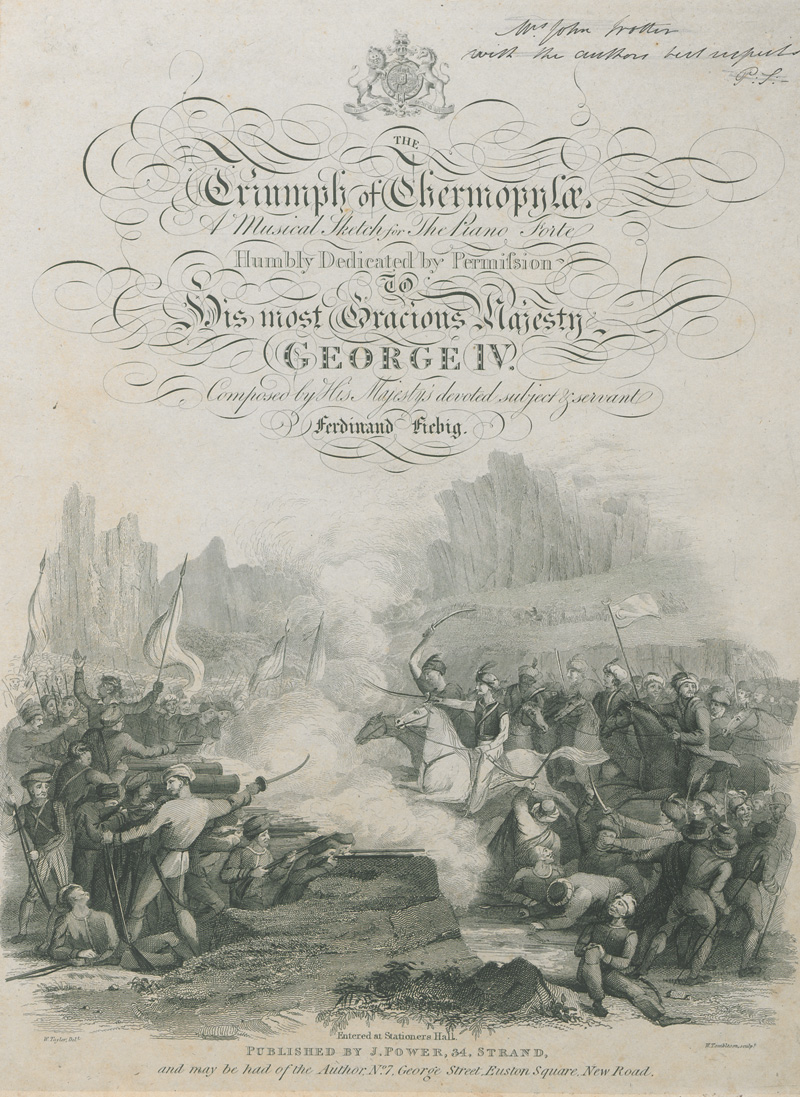 Mrs John Trotter
with the authors best respects
F: F:
THE
Triumph of Thermopylæ.
A Musical Sketch for The Piano Forte
Humbly Dedicated by Permiſsion
TO
His most Gracious Majesty
GEORGE IV.
Composed by His Majesty's devoted subject & servant
Ferdinand Fiebig.
W. Taylor, Delt.
Entered at Stationers Hall.
W. Tombleson, sculpt.
PUBLISHED BY J. POWER, 34, STRAND,
and may be had of the Author, No. 7, George Street, Euston Square, New Road.